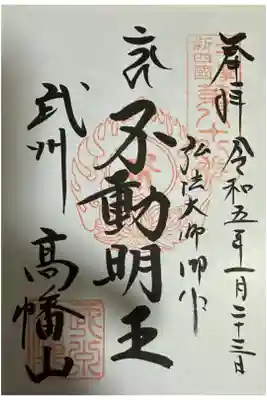 奉拝
令和五年一月二十三日
新四國
弘法大師御作
不動明王
武州
高幡山